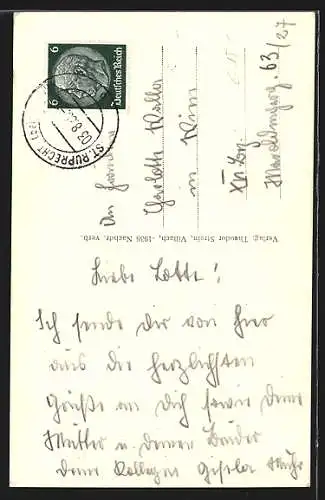 6 6
Deutsches Reich
ST. RUPRECHT
03.8.
An
Charlotte
in Wien
63/27
Verlag: Theodor Strein, Villach, 1938 Nachdr. verb.
Liebe Lotte!
Ich sende dir von hier
aus die herzlichsten
Grüße an Dich sowie Deine
Mutter u. Deinen Bruder
Deine Kollegin Gisela